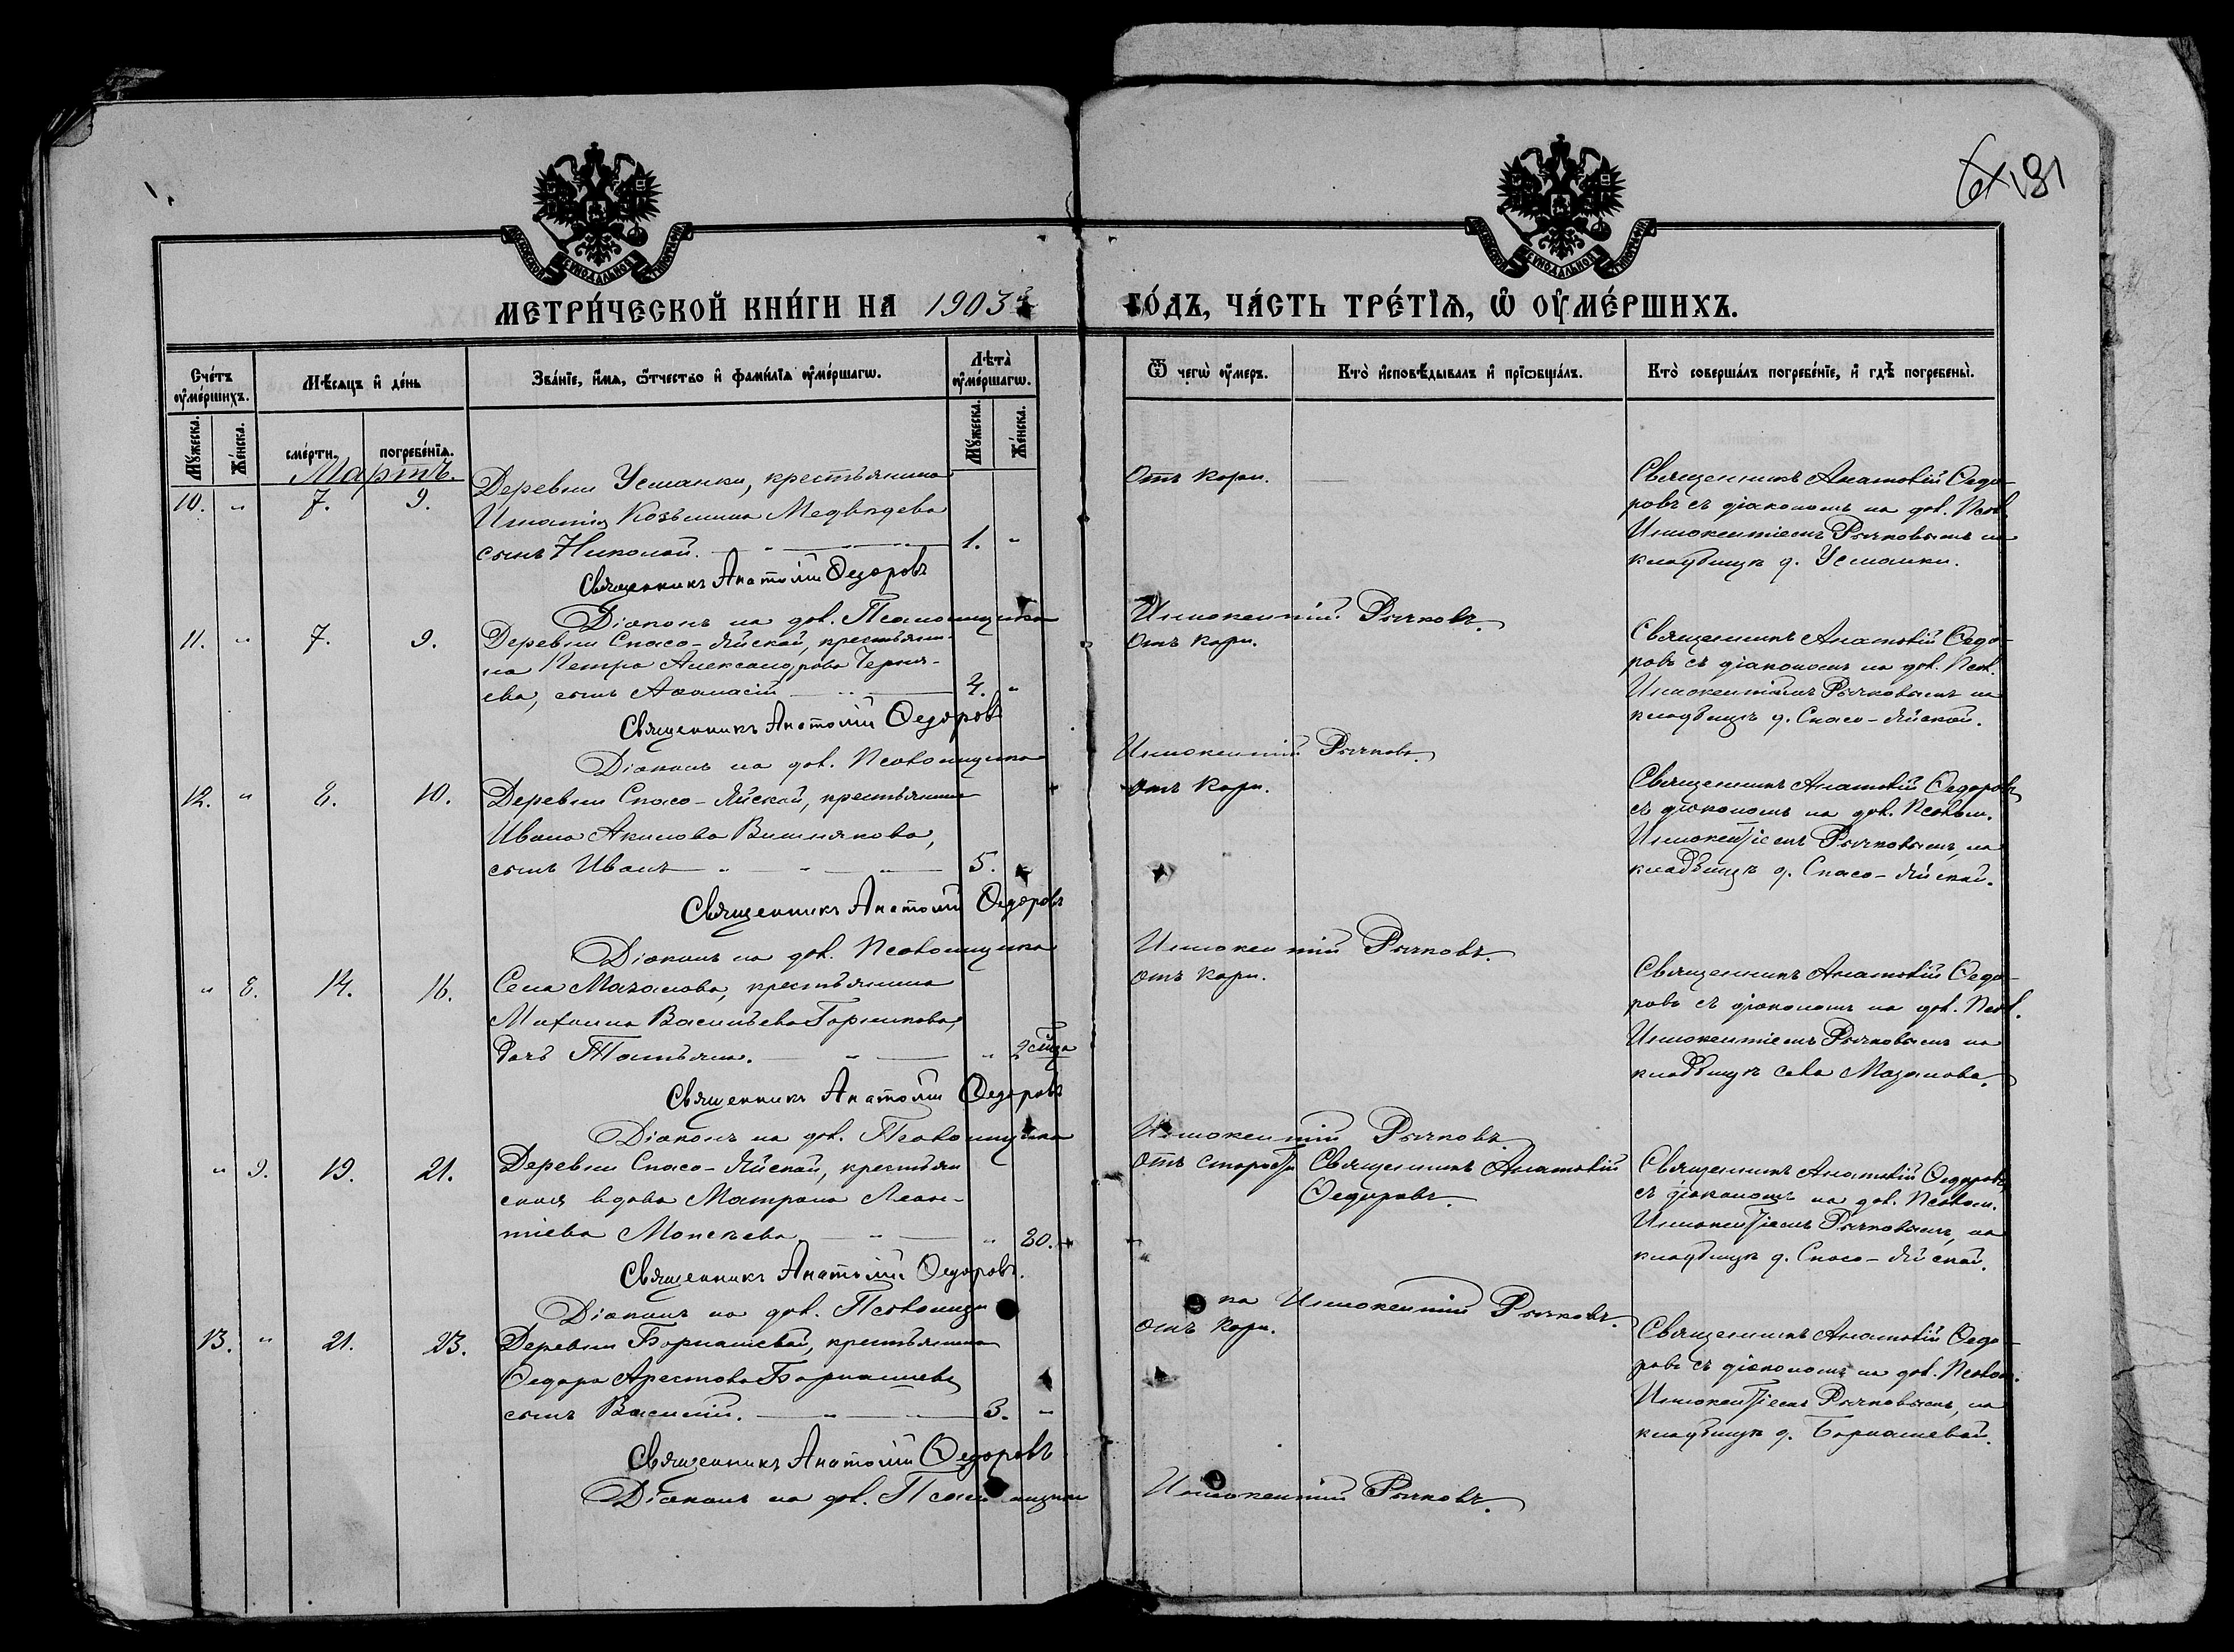 181
МОСКОВСКОЙ СѴНОДАЛЬНОЙ ТИПОГРАФІИ
МОСКОВСКОЙ СѴНОДАЛЬНОЙ ТИПОГРАФІИ
МЕТРИ́ЧЕСКОЙ КНИ́ГИ НА 1903й
ГО́ДЪ, ЧА́СТЬ ТРЕ́ТІѦ, Ѡ҆ ОУ҆МЕ́РШИХЪ.
Сче́тъ оу҆ме́ршихъ.
Мѣ́сяцъ и҆ де́нь
Зва́ніе, и҆́мѧ, ѻ҆́тчество и҆ фами́лїѧ оу҆ме́ршагѡ.
Лѣ́та̀ оу҆ме́ршагѡ.
Ѿ чегѡ̀ оу҆́меръ.
Кто̀ и҆сповѣ́дывалъ и҆ прїѡбща́лъ.
Кто̀ соверша́лъ погребе́нїе, и҆ гдѣ̀ погребены̀.
Му́жеска.
Же́нска.
сме́рти.
погребе́нїѧ.
Му́жеска.
Же́нска.
Мартъ.
10. „ 7. 9. Деревни Усманки, крестьянина
Игнатія Козьмина Медвѣдева
сынъ Николай. 1. „
Отъ кори.
Священникъ Анатолій Ѳедо-
ровъ съ діакономъ на дол. Псал.
Иннокентіемъ Рычковымъ на
кладбищѣ д. Усманки.
Священникъ Анатолій Ѳедоровъ
Діаконъ на дол. Псаломщика Иннокентій Рычковъ.
11. „ 7. 9. Деревни Спасо-Яйской, крестьяни-
на Петра Александрова Черня-
ева, сынъ Аѳанасій 4. „
Отъ кори.
Священникъ Анатолій Ѳедо-
ровъ съ діакономъ на дол. Псал.
Иннокентіемъ Рычковымъ на
кладбищѣ д. Спасо-Яйской.
Священникъ Анатолій Ѳедоровъ
Діаконъ на дол. Псаломщика Иннокентій Рычковъ.
12. „ 8. 10. Деревни Спасо-Яйской, крестьянина
Ивана Акимова Вишнякова,
сынъ Иванъ 5. „
Отъ кори.
Священникъ Анатолій Ѳедоровъ
съ діакономъ на дол. Псалом.
Иннокентіемъ Рычковымъ, на
кладбищѣ д. Спасо-Яйской.
Священникъ Анатолій Ѳедоровъ
Діаконъ на дол. Псаломщика Иннокентій Рычковъ.
„ 8. 14. 16. Села Мазалова, крестьянина
Михаила Васильева Горшкова,
дочь Татьяна. „
Отъ кори.
Священникъ Анатолій Ѳедо-
ровъ съ діакономъ на дол. Псал.
Иннокентіемъ Рычковымъ на
кладбищѣ села Мазалова.
Священникъ Анатолій Ѳедоровъ
Діаконъ на дол. Псаломщика Иннокентій Рычковъ.
„ 9. 19. 21. Деревни Спасо-Яйской, крестьян
ская вдова Матрона Леон-
тіева Мокѣева „ 80.
Отъ старости
Священникъ Анатолій
Ѳедоровъ.
Священникъ Анатолій Ѳедоровъ
съ діакономъ на дол. Псалом.
Иннокентіемъ Рычковымъ, на
кладбищѣ д. Спасо-Яйской.
Священникъ Анатолій Ѳедоровъ.
Діаконъ на дол. Псаломщика Иннокентій Рычковъ.
13. „ 21. 23. Деревни Борнашевой, крестьянина
Ѳедора Арестова Борнашева
сынъ Василій. 3. „
Отъ кори.
Священникъ Анатолій Ѳедо-
ровъ съ діакономъ на дол. Псалом.
Иннокентіемъ Рычковымъ, на
кладбищѣ д. Борнашевой.
Священникъ Анатолій Ѳедоровъ
Діаконъ на дол. Псаломщика Иннокентій Рычковъ.